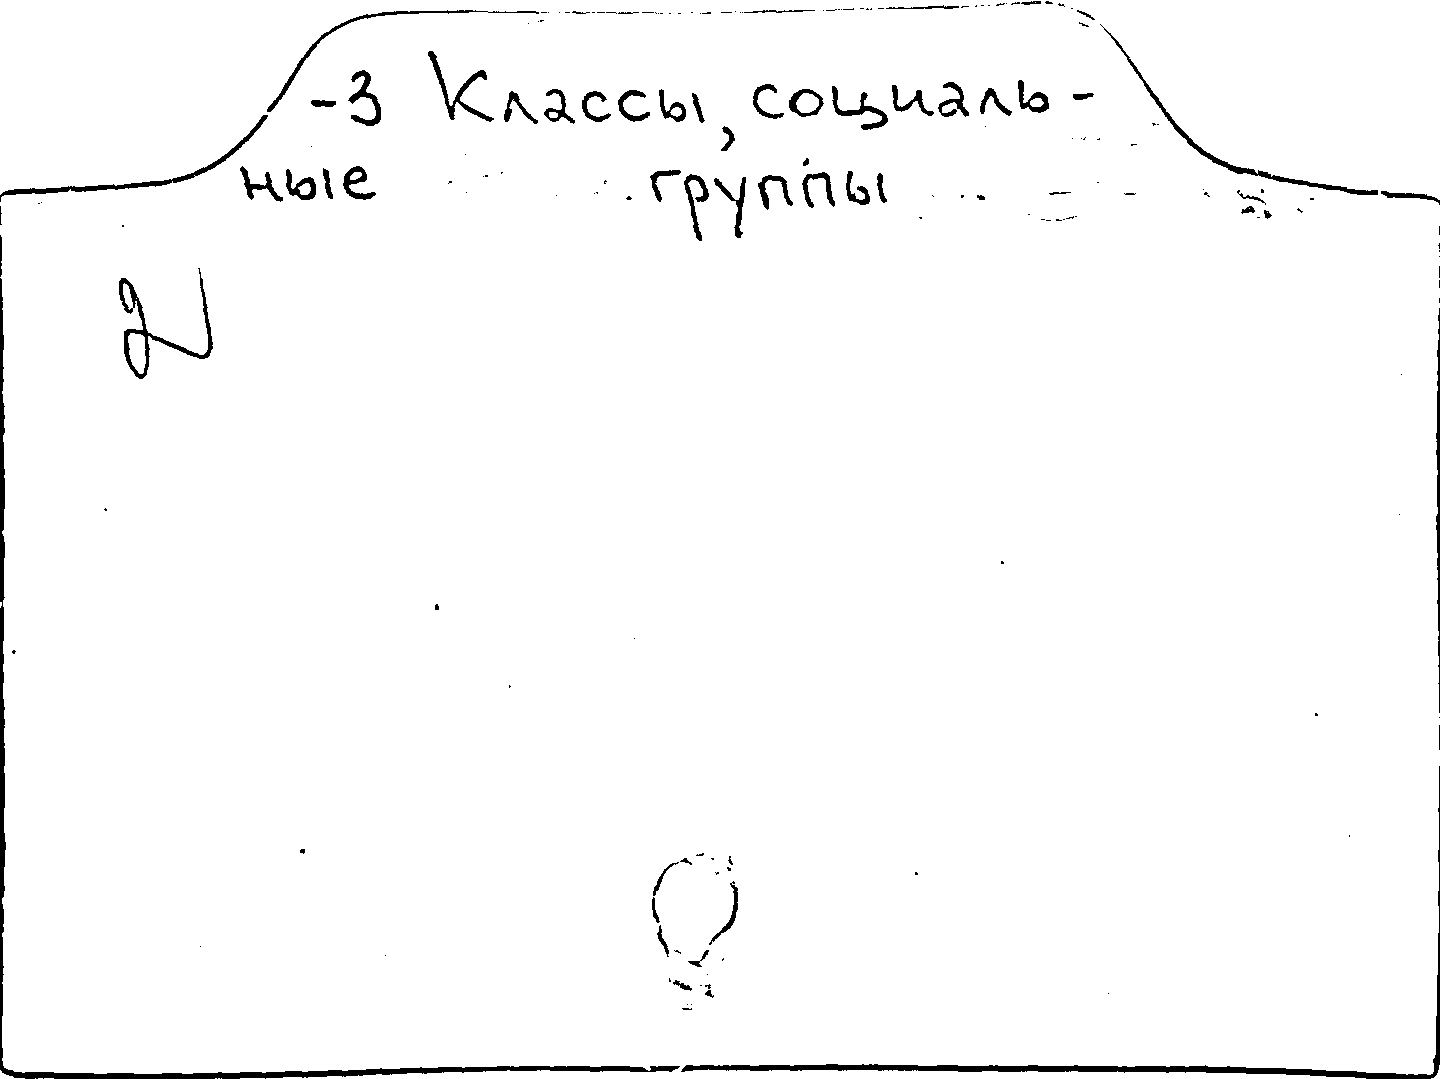 -3 Классы, социаль-
ные группы